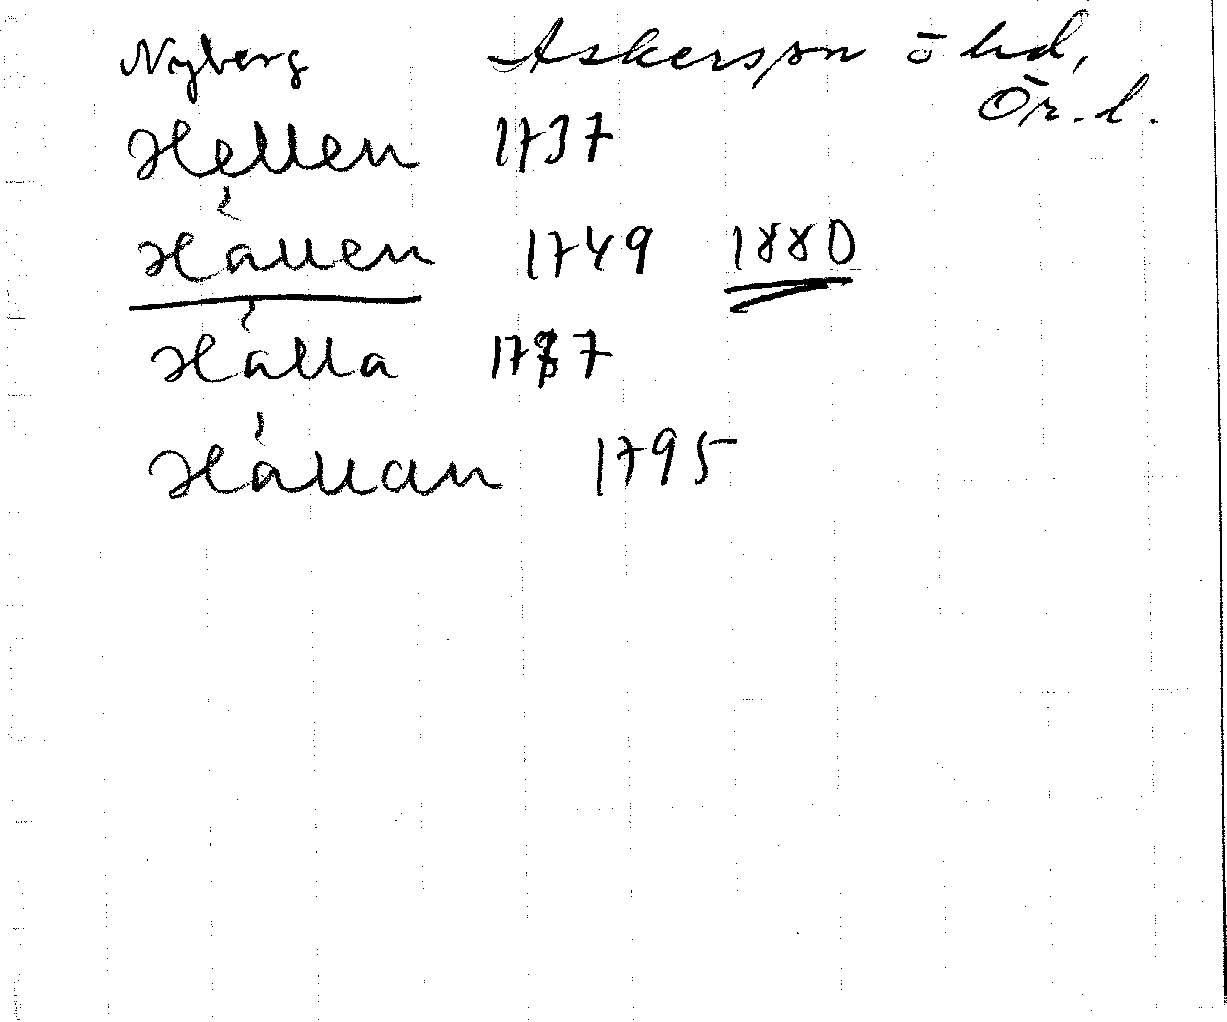 Nyberg Askers sn ö hd,
Ör. l.
Hellen 1737
Hällen 1749 1880
Hälla 1787
Hällan 1795